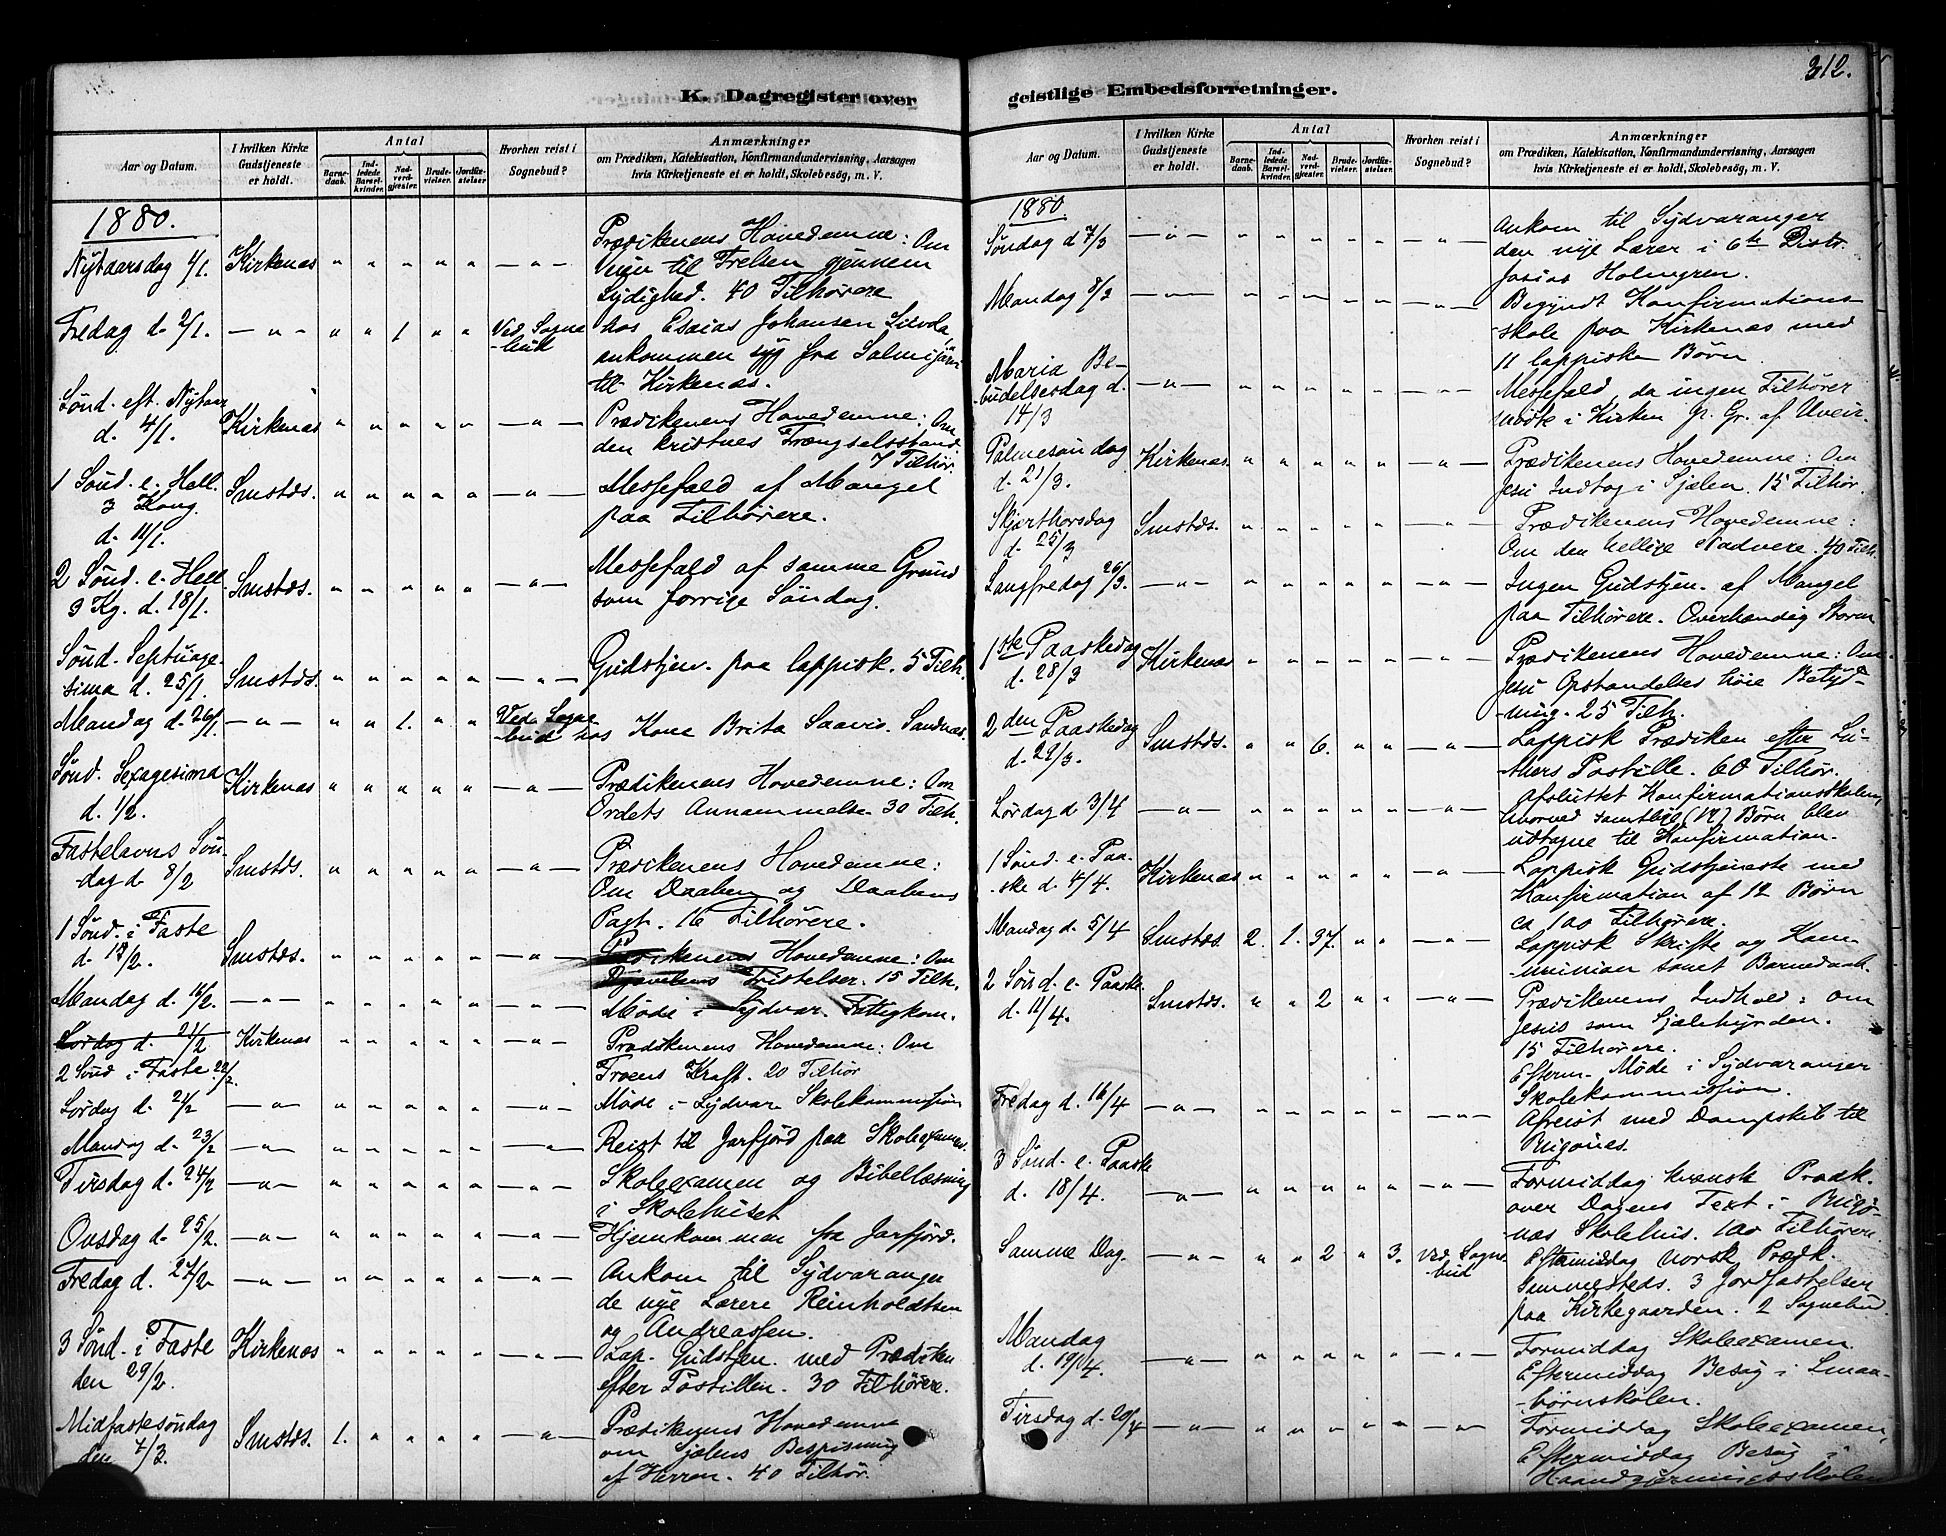 K. Dagregister over
Aar og Datum.
I hvilken Kirke Gudstjeneste er holdt.
Antal
Barnedaab.
Indledede Barselkvinder.
Nadverdgjæster.
Brudevielser.
Jordfæstelser.
Hvorhen reist i Sognebud?
Anmærkninger
om Prædiken, Katekisation, Konfirmandundervisning, Aarsagen
hvis Kirketjeneste ei er holdt, Skolebesøg, m. V.
1880.
Nytaarsdag 1/1. Kirkenæs " " " " " — " — Prædikenens Hovedemne: Om
Veien til Frelsen gjennem
Lydighed. 40 Tilhørere
Fredag d. 2/1. — " — " " 1. " " Ved Sogne
-bud hos Esaias Johansen
ankommen syg fra
til Kirkenæs.
Sønd. eft. Nytaar
d. 4/1. Kirkenæs " " " " " — " — Prædikenens Hovedemne: Om
den kristnes Trængselsstand.
7 Tilhör.
1 Sønd. e. Hell.
3 Kong.
d. 11/1. Smstds. " " " " " — " — Messefald af Mangel
paa Tilhörere.
2 Sønd. e. Hell
3 Kg. d. 18/1. Smstds. " " " " " — " — Messefald af samme Grund
som forrige Söndag.
Sønd. Septuage-
sima d. 25/1. Smstds. " " " " " — " — Gudstjen. paa lappisk. 5 Tilh.
Mandag d. 26/1. — " — " " 1. " " Ved Sogne
-bud hos Kone Brita Saavis. Sandnæs.
Sønd. Sexagesima
d. 1/2. Kirkenæs " " " " " — " — Prædikenens Hovedemne: Om
Ordets Annammelse. 30 Tilh.
Fastelavns Søn-
dag d. 8/2 Smstds. " " " " " — " — Prædikenens Hovedemne:
Om Daaben og Daabens
Pagt. 16 Tilhörere.
1 Sønd. i Faste
d. 15/2. Smstds. " " " " " — " — Prædikenens Hovedemne: Om
Djævelens Fristelser. 15 Tilh.
Mandag d. 16/2. — " — " " " " " — " — Möde i Sydvar. Fattigkom.
Lørdag d. 21/2
2 Sønd i Faste 22/2. Kirkenæs " " " " " — " — Prædikenens Hovedemne: Om
Troens Kraft. 20 Tilhör
Lørdag d. 21/2 — " — " " " " " — " — Möde i Sydvar. Skolekommission
Mandag d. 23/2 — " — " " " " " — " — Reist til Jarfjord paa Skoleexamen.
Tirsdag d. 24/2 — " — " " " " " — " — Skoleexamen og Bibellæsning
i Skolehuset
Onsdag d. 25/2. — " — " " " " " — " — Hjemkommen fra Jarfjord.
Fredag d. 27/2. — " — " " " " " — " — Ankom til Sydvaranger
de nye Lærere Reinholdtsen
og Andreassen.
3 Sønd. i Faste
den 29/2. Kirkenæs " " " " " — " — Lap. Gudstjen. med Prædiken
efter Postillen. 30 Tilhörere.
Midfastesöndag
den 7/3. Smstds. 1. " " " " — " — Prædikenens Hovedemne
om Sjælens Bespisning
af Herren. 40 Tilhör.
geistlige Embedsforretninger.
312.
Aar og Datum.
I hvilken Kirke Gudstjeneste er holdt.
Antal
Barnedaab.
Indledede Barselkvinder.
Nadverdgjæster.
Brudevielser.
Jordfæstelser.
Hvorhen reist i Sognebud?
Anmærkninger
om Prædiken, Katekisation, Konfirmandundervisning, Aarsagen
hvis Kirketjeneste ei er holdt, Skolebesøg, m. V.
1880
Søndag d 7/3 — " — " " " " " — " — Ankom til Sydvaranger
den nye Lærer i 6te Distr.
Josias Holmgren.
Mandag 8/3 — " — " " " " " — " — Begyndt Konfirmations-
-skole paa Kirkenæs med
11 lappiske Børn.
Maria Be-
budelsesdag d.
14/3 — " — " " " " " — " — Messefald, da ingen Tilhører
mødte i Kirken p. Gr. af Uveir.
Palmesøndag
d. 21/3. Kirkenæs " " " " " — " — Prædikenens Hovedemne: Om
Jesu Indtog i Sjælen. 15 Tilhör.
Skjærthorsdag
d. 25/3 Smstds. " " " " " — " — Prædikenens Hovedemne:
Om den hellige Nadvere. 40 Tilh.
Langfredag 26/3. — " — " " " " " — " — Ingen Gudstjen. af Mangel
paa Tilhørere. Overhændig Storm
1ste Paaskedag
d. 28/3 Kirkenæs " " " " " — " — Prædikenens Hovedemne: Om
Jesu Opstandelses høie Betyd-
-ning. 25 Tilh.
2den Paaskedag
d. 29/3. Smstds. " " 6. " " — " — Lappisk Prædiken efter Lu-
thers Postille. 60 Tilhör.
Lørdag d 3/4 — " — " " " " " — " — Afsluttet Konfirmationsskolen,
hvorved samtlige (12) Børn blev
udtagne til Konfirmation.
1 Sønd. e. Paa-
ske d. 4/4. Kirkenæs " " " " " — " — Lappisk Gudstjeneste med
Konfirmation af 12 Børn
ca 100 Tilhörere.
Mandag d. 5/4 Smstds. 2. 1. 37. " " — " — Lappisk Skrifte og Kom-
munion samt Barnedaab.
2 Sønd. e. Paaske
d. 11/4. Smstds. " " 2 " " — " — Prædikenens Indhold: Om
Jesus som Sjælehyrden.
15 Tilhörere.
Efterm. Møde i Sydvaranger
Skolekommission.
Fredag d. 16/4 — " — " " " " " — " — Afreist med Dampskib til
Bugönæs.
3 Sønd. e. Paaske
d. 18/4. — " — " " " " " — " — Formiddag kvænsk Prædk.
over Dagens Text i Bugö-
næs Skolehus. 100 Tilhörere.
Samme Dag. — " — " " 2 " 3. Ved Sogne-
bud Eftermiddag norsk Prædk.
sammesteds. 3 Jordfæstelser
paa Kirkegaarden. 2 Sognebud.
Mandag
d. 19/4. — " — " " " " " — " — Formiddag Skoleexamen.
Eftermiddag Besøg i Smaa-
-børnskolen.
Tirsdag d. 20/4 — " — " " " " " — " — Formiddag Skoleexamen,
Eftermiddag Besøg i
Haandgjerningsskolen